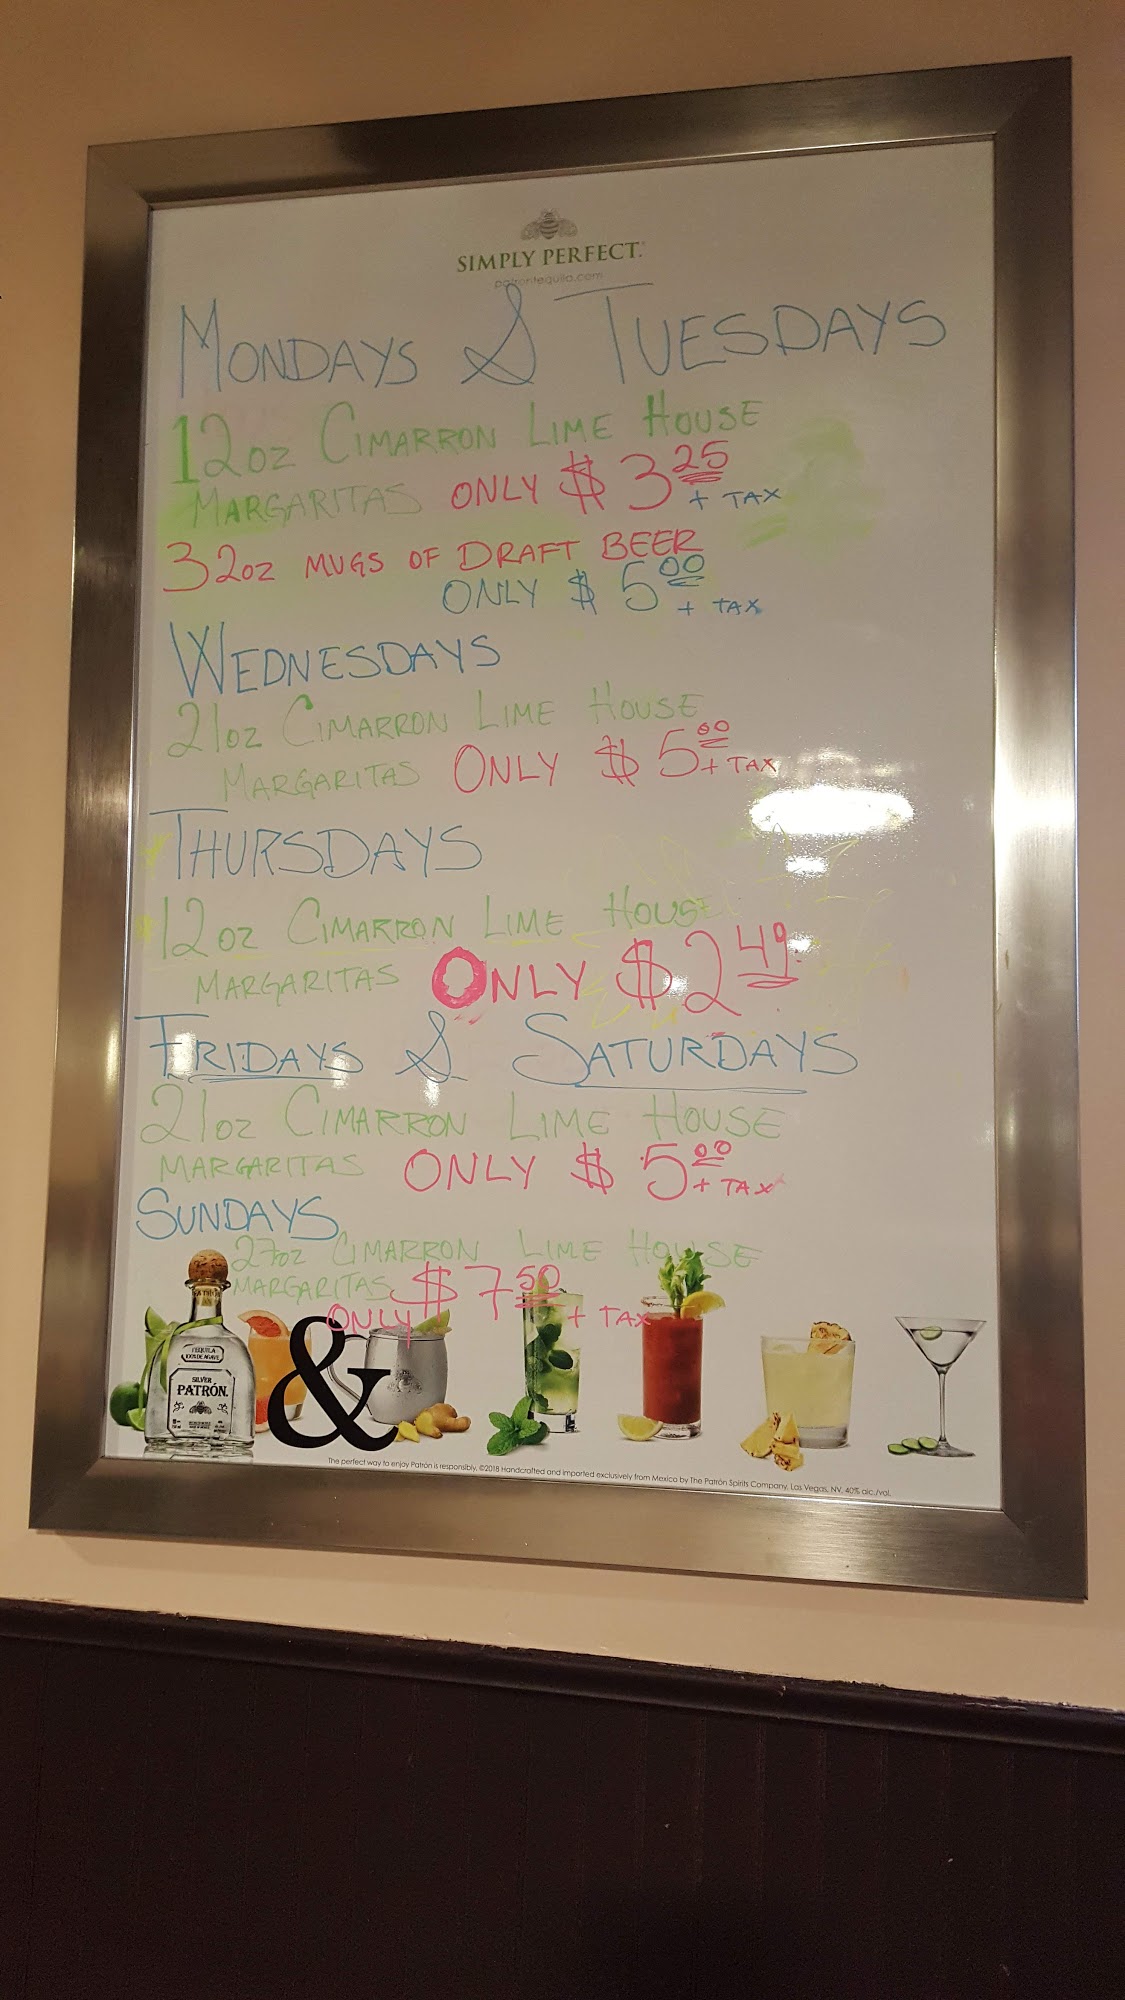 SIMPLY PERFECT.
patrontequila.com
MONDAYS & TUESDAYS
12oz CIMARRON LIME HOUSE
MARGARITAS ONLY $3.25
+ TAX
32oz MUGS OF DRAFT BEER
ONLY $5.00
+ TAX
WEDNESDAYS
21oz CIMARRON LIME HOUSE
MARGARITAS ONLY $5.00 + TAX
THURSDAYS
12oz CIMARRON LIME HOUSE
MARGARITAS ONLY $2.49
FRIDAYS & SATURDAYS
21oz CIMARRON LIME HOUSE
MARGARITAS ONLY $5.00
+ TAX
SUNDAYS
27oz CIMARRON LIME HOUSE
MARGARITAS $7.50
ONLY + TAX
&
TEQUILA
100% DE AGAVE
SILVER
PATRÓN.
The perfect way to enjoy Patrón is responsibly. ©2018 Handcrafted and imported exclusively from Mexico by The Patrón Spirits Company, Las Vegas, NV. 40% alc./vol.